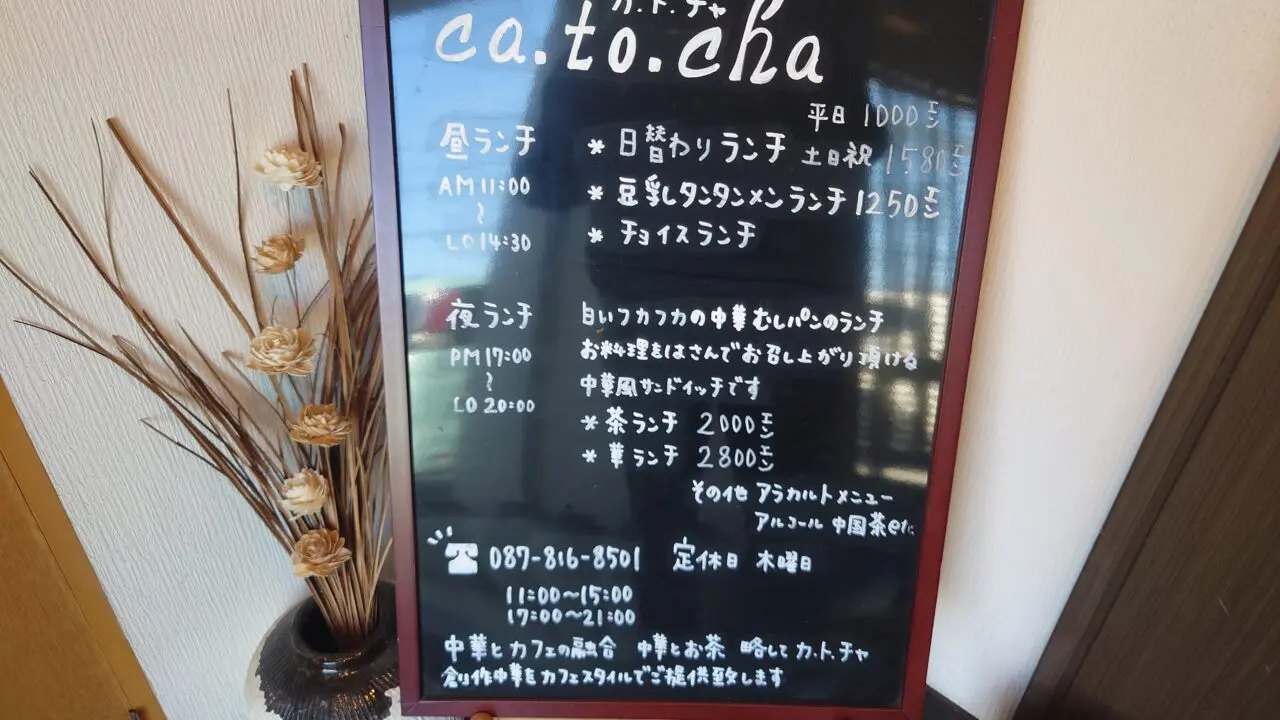 カ.ト.チャ
ca.to.cha
平日 1000エン
昼ランチ * 日替わりランチ 土日祝 1580エン
AM11:00 * 豆乳タンタンメンランチ 1250エン
〜
LO14:30 * チョイスランチ
夜ランチ 白いフカフカの中華むしパンのランチ
PM17:00 お料理をはさんでお召し上がり頂ける
〜
中華風サンドイッチです
LO20:00 * 茶ランチ 2000エン
* 華ランチ 2800エン
その他 アラカルトメニュー
アルコール 中国茶etc
087-816-8501 定休日 木曜日
11:00〜15:00
17:00〜21:00
中華とカフェの融合 中華とお茶 略してカ.ト.チャ
創作中華をカフェスタイルでご提供致します